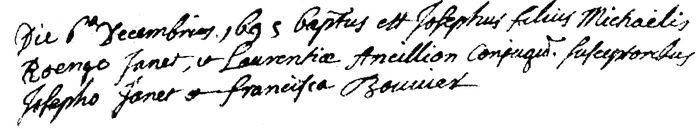 Die 6ta Decembries 1695 baptus est Josephus filius Michaelis
Roengo Janet, & Laurentiæ Ancillion Conjugũ. susceptoribus
Josepho Janet & francisca Bouvier